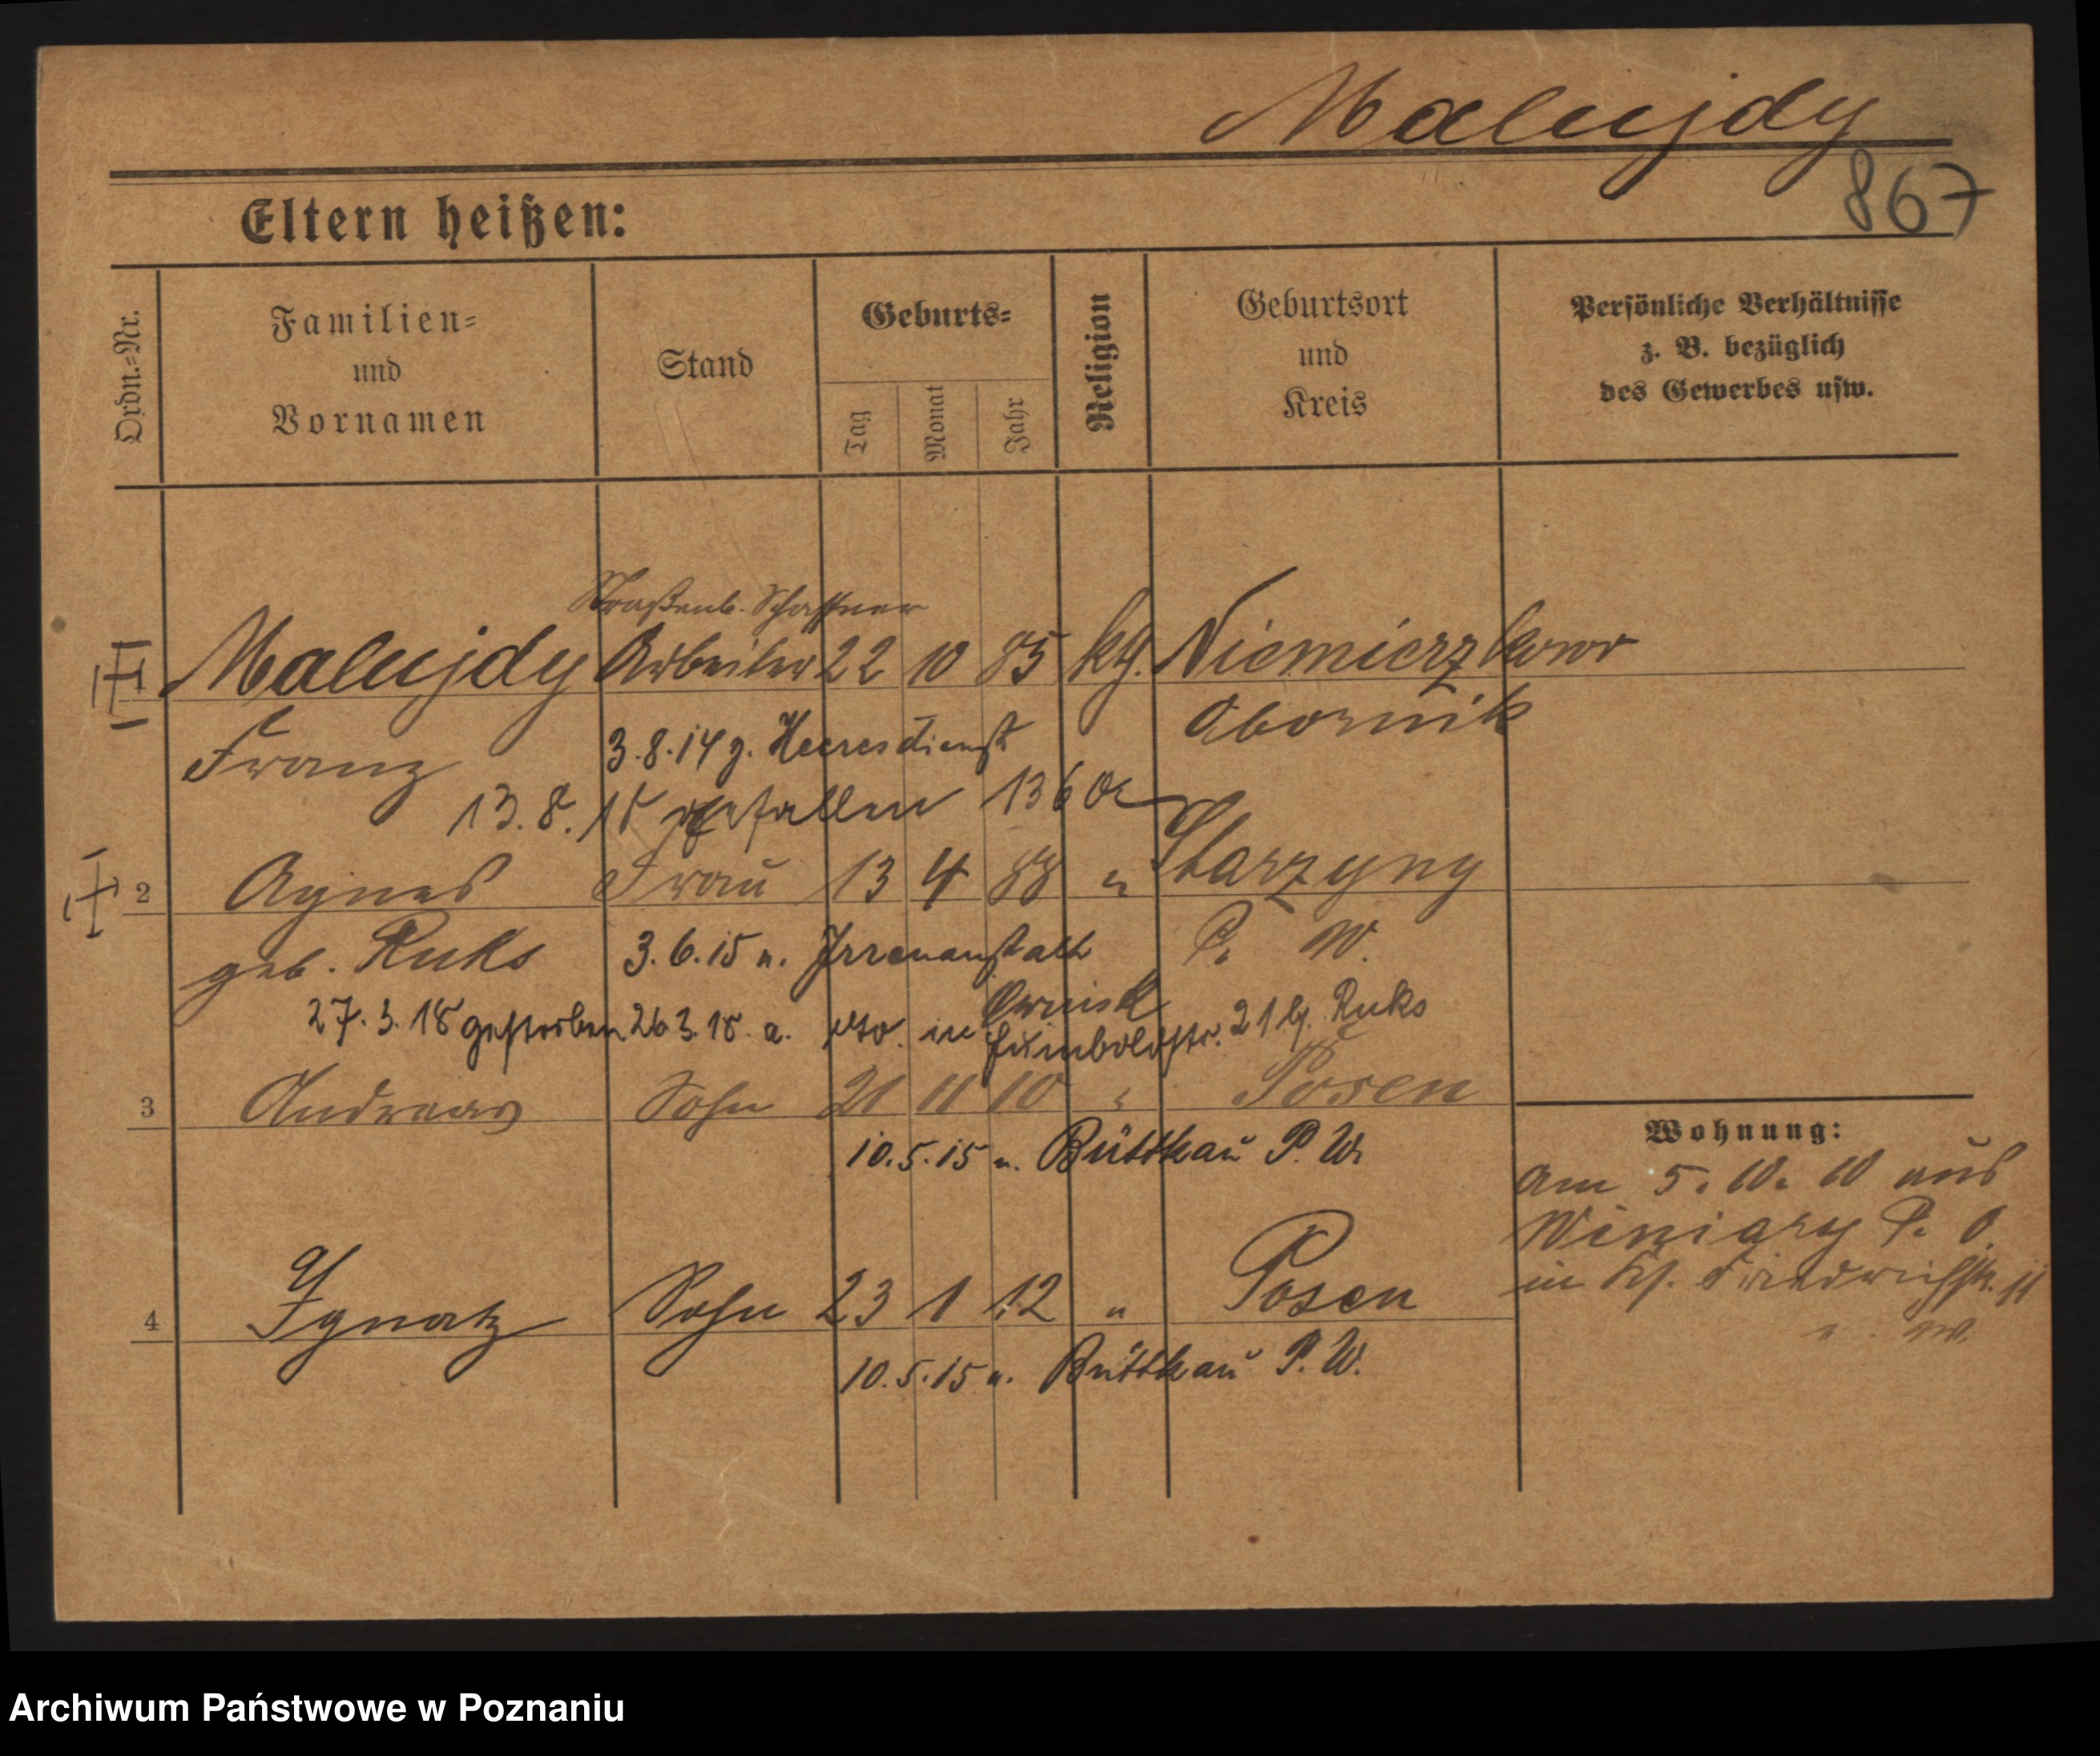 Malujdy
867
Eltern heißen:
Ordn.=Nr.
Familien=
und
Vornamen
Stand
Geburts=
Tag
Monat
Jahr
Religion
Geburtsort
und
Kreis
Persönliche Verhältnisse
z. B. bezüglich
des Gewerbes usw.
Straßenb. Schaffner
Malujdy Arbeiter 22 10 85 kg. Niemierzkowo
Franz 3.8.14 z. Heeresdienst Obornik
13.8.15 gefallen 136
2 Agnes Frau 13 4 88 " Starzyny
geb. Ruks 3.6.15 n. Irrenanstalt P. W.
Owinsk
27.3.18 gestorben 26 3.18. a. in Humboldstr. 21 b. Ruks
3 Andreas Sohn 21 11 10 " Posen
10.5.15 n. Büttkau P. W.
4 Ignatz Sohn 23 1 12 " Posen
10.5.15 n. Büttkau P. W.
Wohnung:
am 5. 10. 10 aus
Winiary P. O.
in Friedrichstr. 11
Archiwum Państwowe w Poznaniu